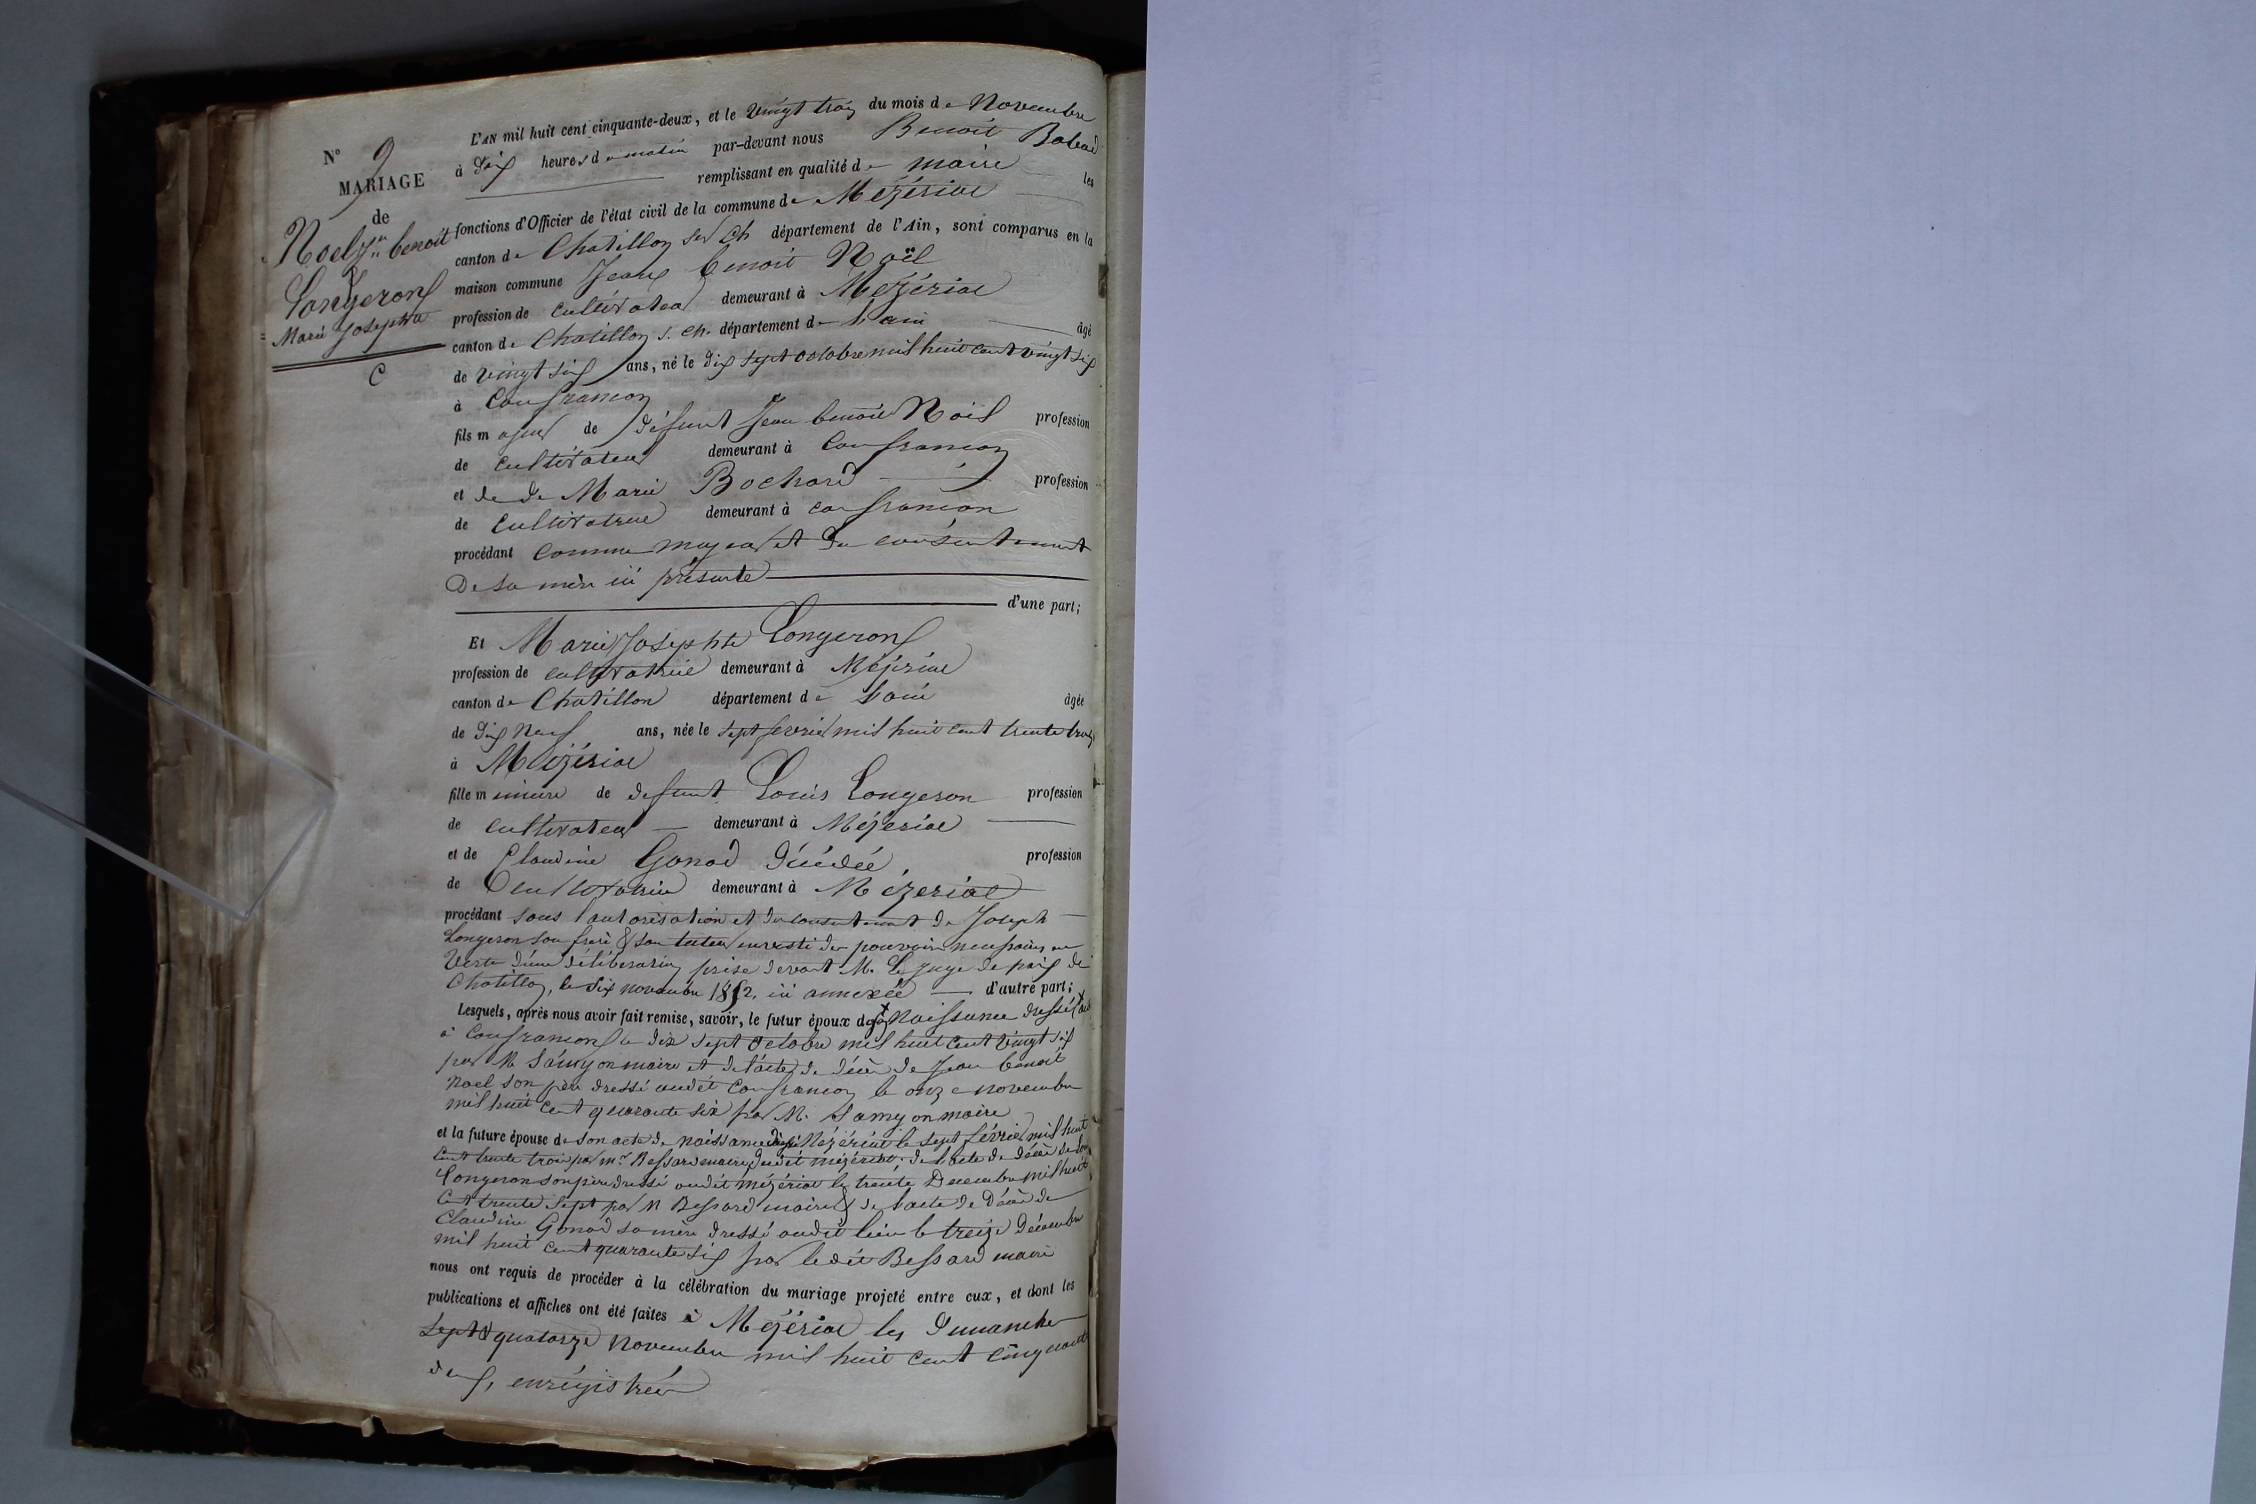 N° 9
MARIAGE
de
Noel Jn benoit
Longeron
Marie Josephte
C
L'AN mil huit cent cinquante-deux, et le vingt trois du mois de Novembre
à dix heures du matin par-devant nous Benoit
remplissant en qualité de maire les
fonctions d'Officier de l'état civil de la commune de Mézériat
canton de Chatillon sur Ch département de l'Ain, sont comparus en la
maison commune Jean benoit Noël
profession de cultivateur demeurant à Mézériat
canton de Chatillon s. Ch. département de l'ain âgé
de vingt six ans, né le dix sept octobre mil huit cent vingt six
à Confrancon
fils majeur de défunt Jean benoit Noël profession
de cultivateur demeurant à Confrancon
et de Marie Bochard profession
de cultivatrice demeurant à confrancon
procédant comme majeur et du consentement
De sa mère ici présente
d'une part;
Et Marie Josephte Longeron
profession de cultivatrice demeurant à Mézériat
canton de Chatillon département de l'ain âgée
de dix neuf ans, née le sept fevrier mil huit cent trente trois
à Mézériat
fille mineure de defunt Louis Longeron profession
de cultivateur demeurant à Mézériat
et de Claudine Gonod décédée profession
de Cultivatrice demeurant à Mézeriat
procédant sous l'autorisation et du consentement de Joseph
Longeron son frere & son tuteur investi des pouvoirs necessaires en
Vertu d'une déliberation prise devant M. le juge de paix de
Chatillon, le six novembre 1852, ici annexée d'autre part;
Lesquels, après nous avoir fait remise, savoir, le futur époux de Naissance dressé
à Confrancon le dix sept Octobre mil huit cent vingt six
par M. Lamyon maire et de l'acte de décès de Jean benoit
Noel son père dressé audit Confrancon le onze novembre
mil huit cent quarante six par M. Lamyon maire
et la future épouse de son acte de naissance dressé Mézériat le sept février mil huit
cent trente trois par Mr Bessard maire dudit mézériat, de l'acte de décès de Louis
Longeron son père dressé audit mézériat le trente Decembre mil huit
cent trente sept par M Bessard maire & de l'acte de Décès de
Claudine Gonod sa mère dressé audit lieu le treize décembre
mil huit cent quarante six par ledit Bessard maire
nous ont requis de procéder à la célébration du mariage projeté entre eux, et dont les
publications et affiches ont été faites à Mézériat les dimanches
sept & quatorze novembre mil huit cent cinquante
deux, enrégistrées